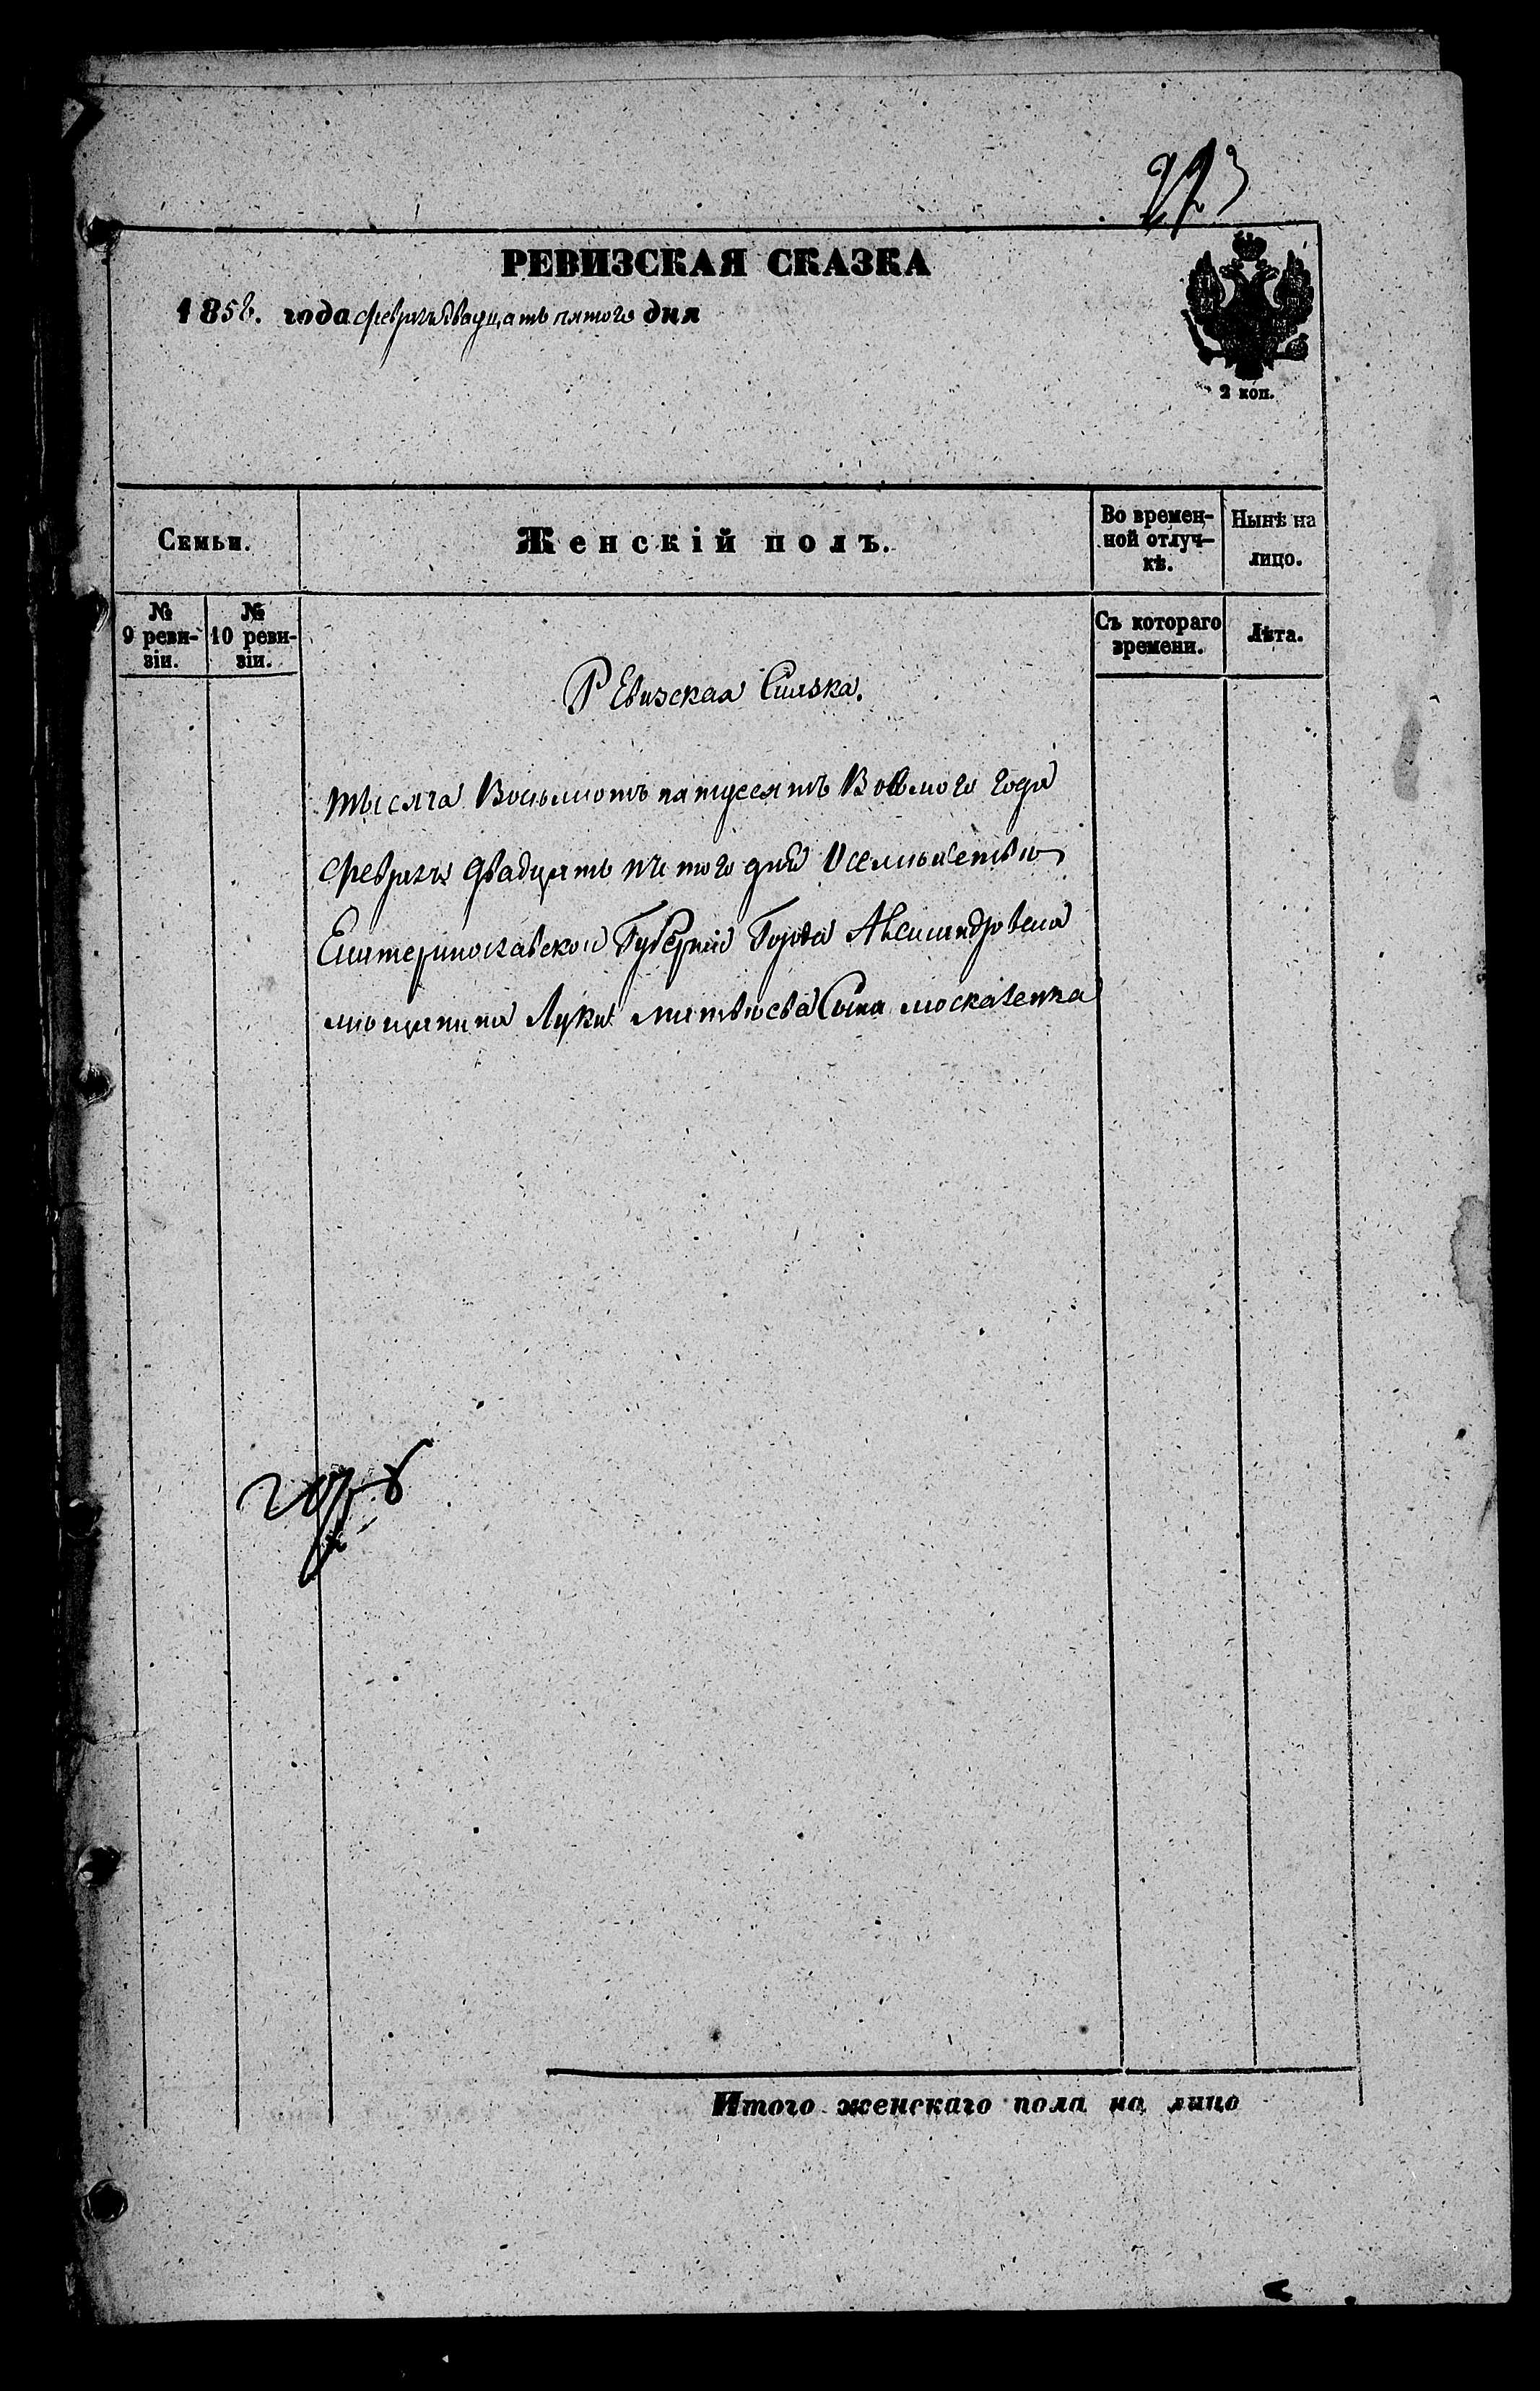 РЕВИЗСКАЯ СКАЗКА
1858. года февраля двадцать пятого дня
2 коп.
Семьи.
Женскій полъ.
Во времен-
ной отлуч-
кѣ.
Нынѣ на
лицо.
№
9 реви-
зіи.
№
10 реви-
зіи.
Съ котораго
времени.
Лѣта.
Ревизская Сказка.
тысяча Восьмсотъ пятдесятъ Восмого года
февраля двадцать пятого дня О семействѣ
Екатеринославской Губерніи Города Александровска
мѣщанина Луки матвѣева Сына москаленка
Итого женскаго пола на лицо